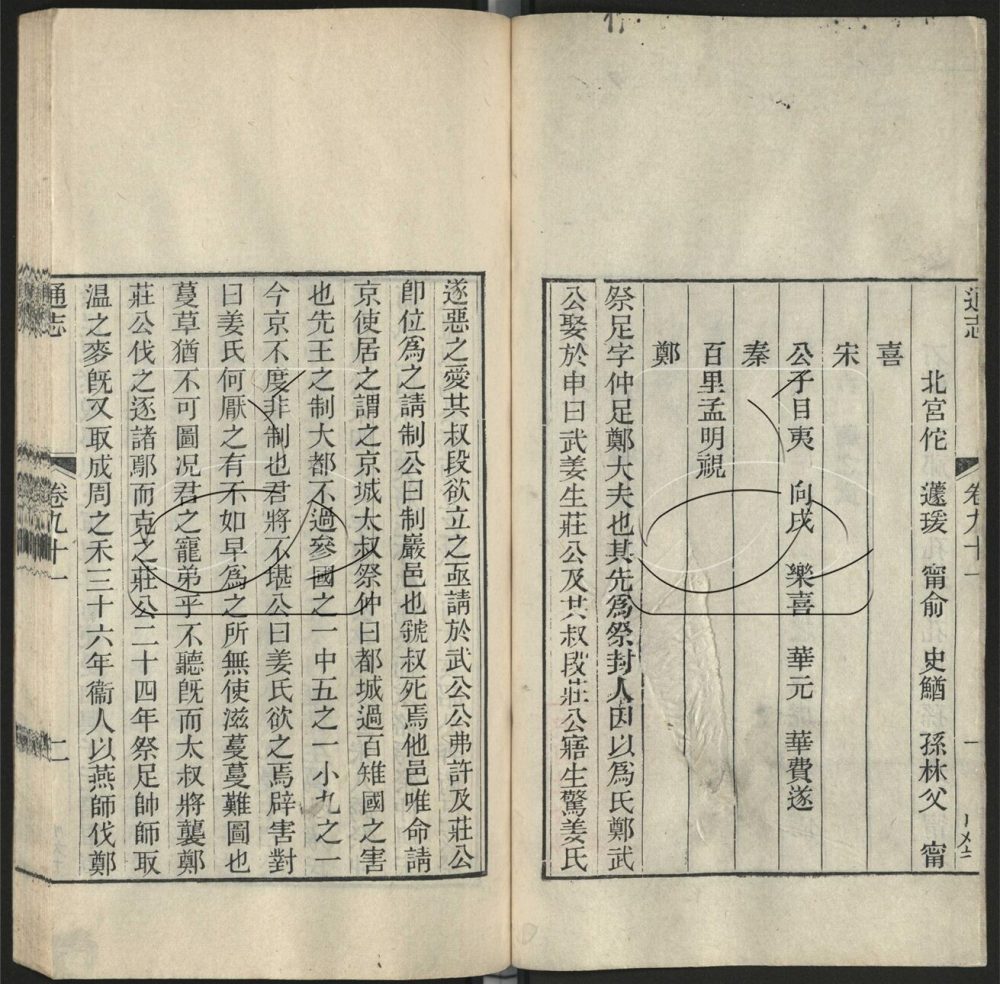 通志
卷九十一
一
北宮佗 蘧瑗 甯俞 史鰌 孫林父 甯
喜
宋
公子目夷 向戌 樂喜 華元 華費遂
秦
百里孟明視
鄭
祭足字仲足鄭大夫也其先爲祭封人因以爲氏鄭武
公娶於申曰武姜生莊公及其叔段莊公寤生驚姜氏
遂惡之愛其叔段欲立之亟請於武公公弗許及莊公
卽位爲之請制公曰制巖邑也虢叔死焉他邑唯命請
京使居之謂之京城太叔祭仲曰都城過百雉國之害
也先王之制大都不過參國之一中五之一小九之一
今京不度非制也君將不堪公曰姜氏欲之焉辟害對
曰姜氏何厭之有不如早爲之所無使滋蔓蔓難圖也
蔓草猶不可圖况君之寵弟乎不聽旣而太叔將襲鄭
莊公伐之逐諸鄢而克之莊公二十四年祭足帥師取
温之麥旣又取成周之禾三十六年衞人以燕師伐鄭
通志
卷九十一
二